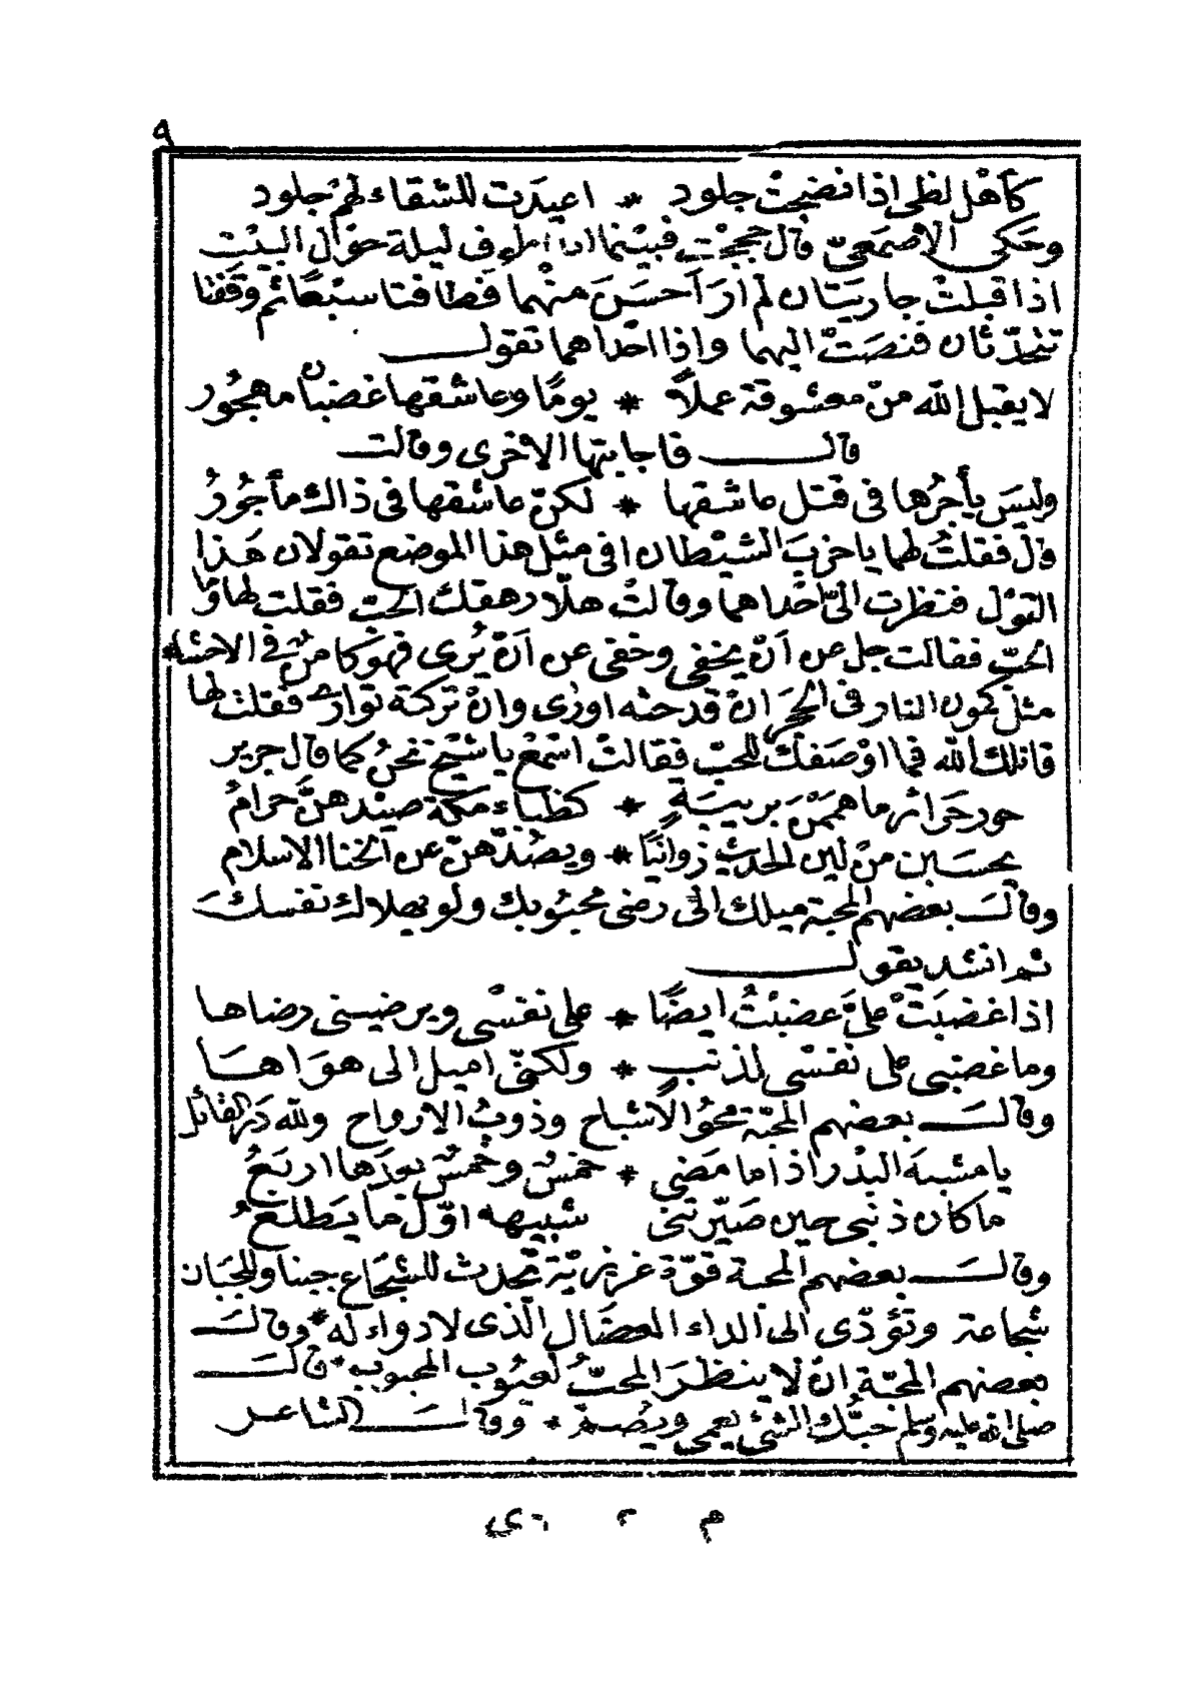 ٩
كأهل لظى اذا نضجت جلود * اعيدت للشقاء لهم جلود
وحكى الاصمعى قال حججت فبينما انا ليلة حول البيت
اذا قبلت جاريتان لم ار احسن منهما فطافتا سبعا ثم وقفتا
تتحدثان فنصت اليهما واذا احداهما تقول
لا يقبل الله من معشوقة عملاً * يومًا وعاشقها غضبان مهجور
قال فاجابتها الاخرى وقالت
وليس يأجرها فى قتل عاشقها * لكن عاشقها فى ذاك مأجور
قال فقلت لهما يا حزب الشيطان افى مثل هذا الموضع تقولان هذا
القول فنظرت الىّ احداهما وقالت هلا رهقك الحب فقلت لها وما
الحب فقالت جل عن ان يخفى وخفى عن ان يُرى فهو كامن فى الاحشاء
مثل كمون النار فى الحجر ان قدحته اورى وان تركته توارى فقلت لها
قاتلك الله فما اوصفك للحب فقالت اسمع يا شيخ نحن كما قال جرير
حور حرائر ما هممن بريبةٍ * كظباء مكة صيدهن حرام
يحسبن من لين الحديث زوانيًا * ويصدهن عن الخنا الاسلام
وقال بعضهم المحبة ميلك الى رضى محبوبك ولو بهلاك نفسك
ثم انشد يقول
اذا غضبت علىّ غضبتُ ايضًا * على نفسى ويرضينى رضاها
وما غضبى على نفسى لذنبٍ * ولكنى اميل الى هواها
وقال بعضهم المحبّة محو الاشباح وذوب الارواح ولله در القائل
يا مشبه البدر اذا ما مضى * خمس وخمس بعدها اربع
ما كان ذنبى حين صيّرتنى شبيهه اوّل ما يطلع
وقال بعضهم المحبة قوّة غريزيّة تحدث للشجاع جبنا وللجبان
شجاعة وتؤدّى الى الداء العضال الّذى لا دواء له * وقال
بعضهم المحبّة ان لا ينظر المحبّ لعيوب المحبوب * قال
صلى الله عليه وسلم حبّك الشئ يعمى ويصم * وقال الشاعر
م ٢